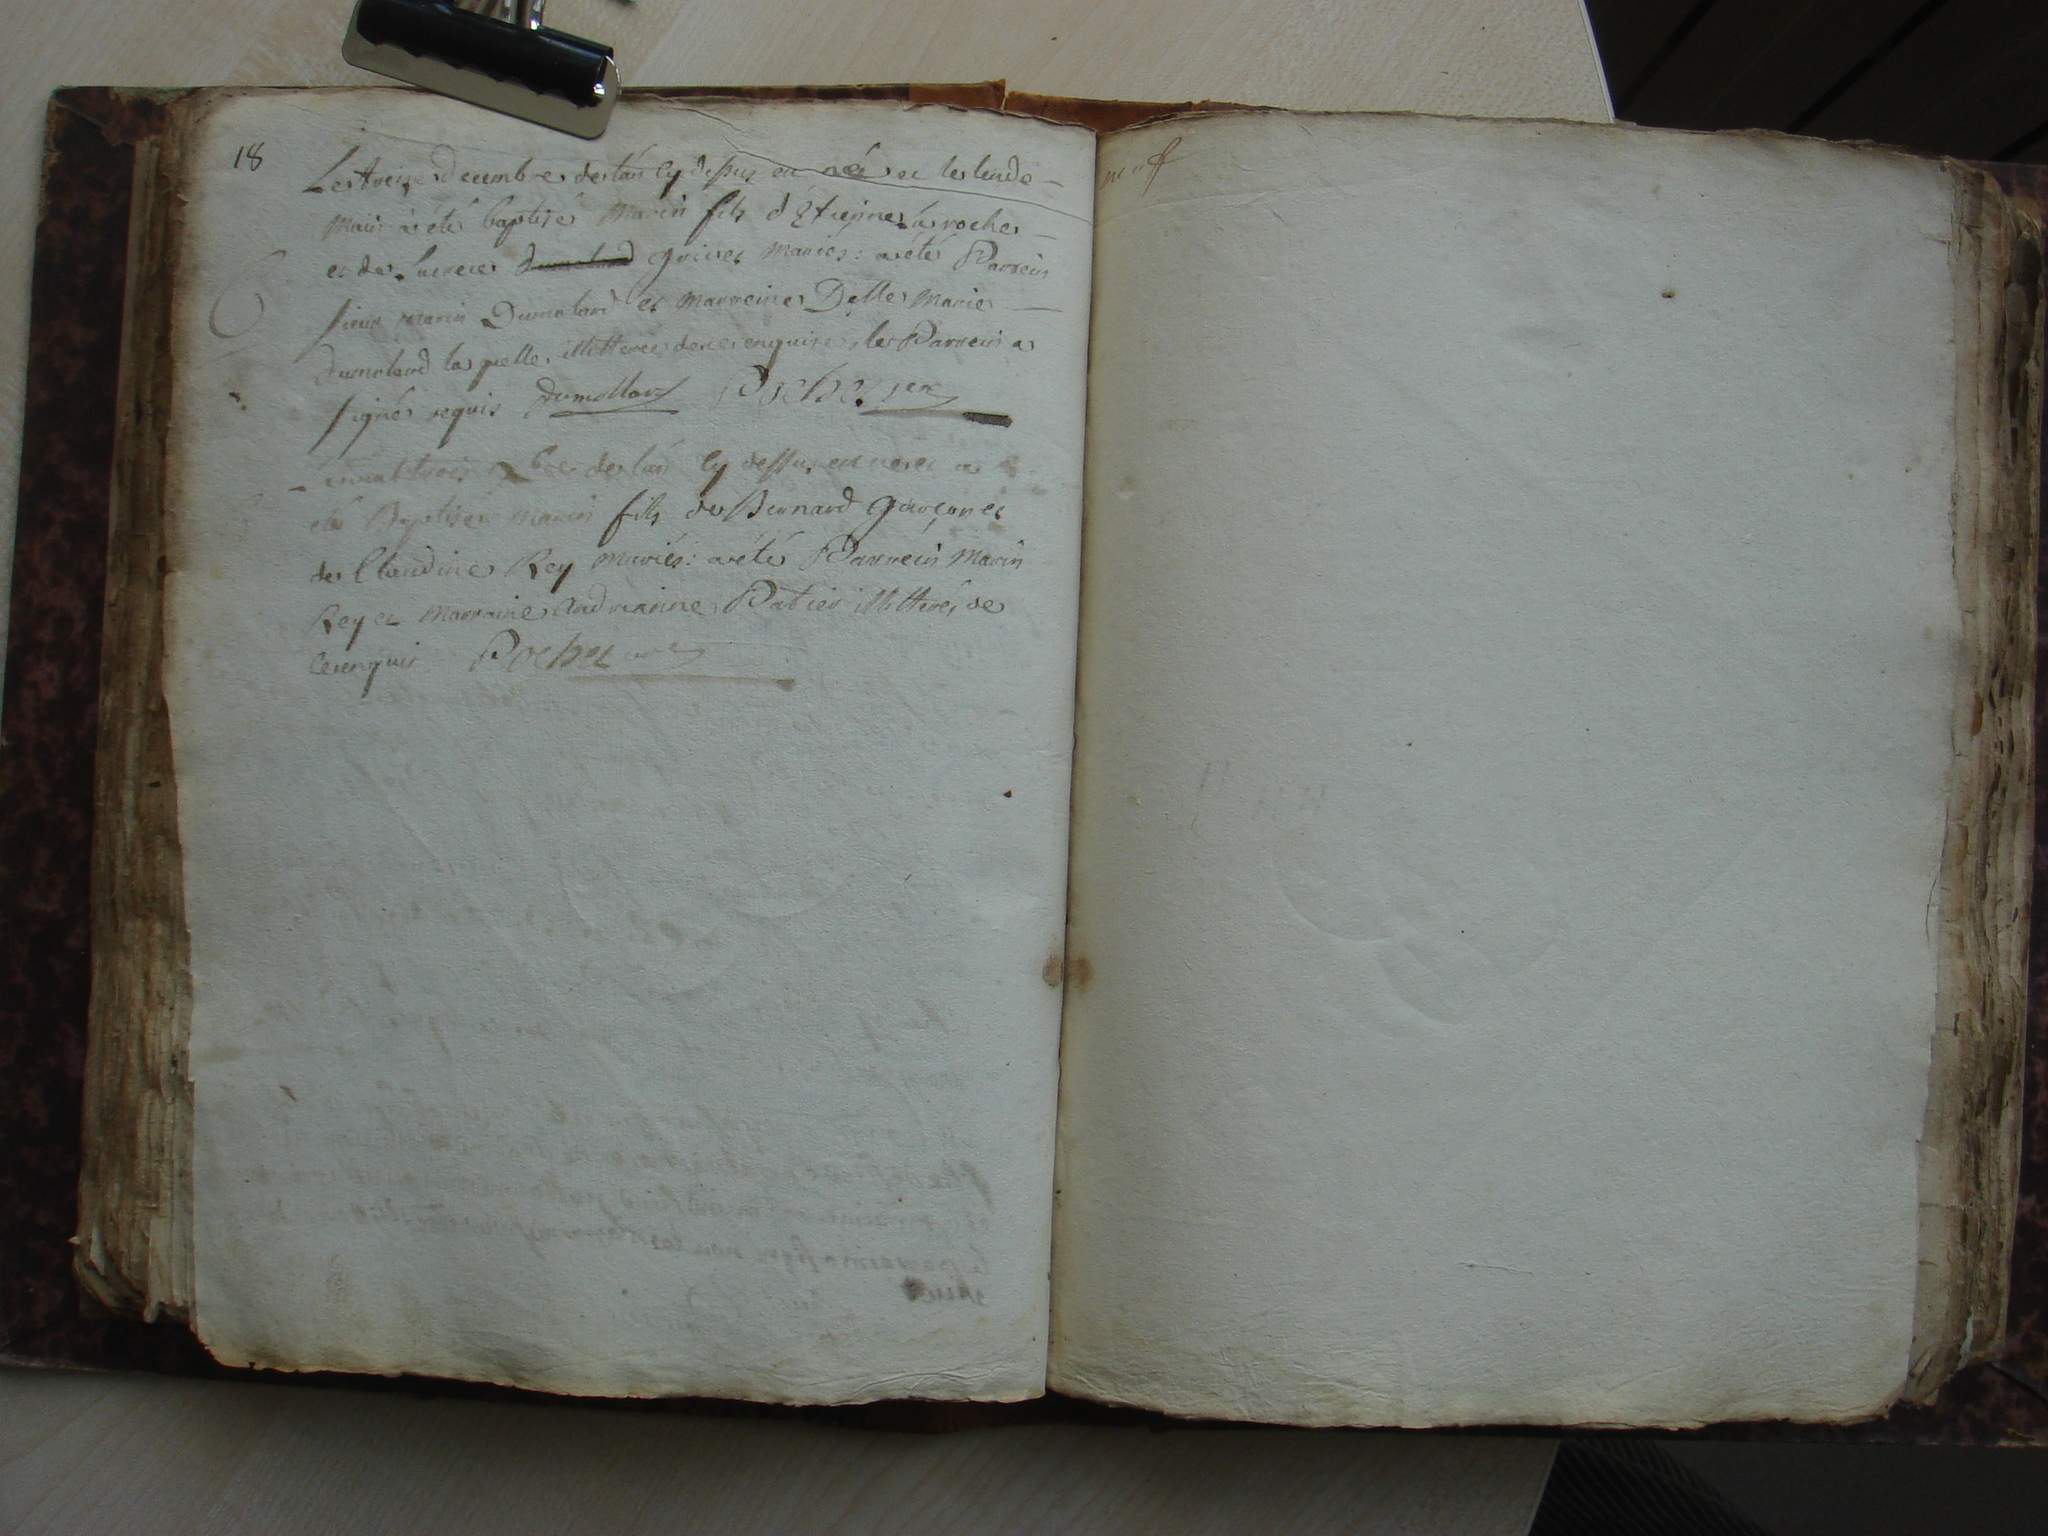 18
Le treize Decembre de l'an cy dessus est né et le lende-
main a eté baptisé Marin fils d'Etienne Laroche
et de Lucrece Dumolard Grivet Mariés : a été Parrein
sieur Marin Dumolard et Marreine Delle Marie
Dumolard la quelle illitterée de ce enquise, le Parrein a
signé requis Dumollard Pochet curé
vingt trois Xbre de l'an cy dessus est né et a
eté Baptisé Marin fils de Bernard Garçon et
de Claudine Rey Mariés : a été Parrein Marin
Rey et Marraine Andrianne Patier illitterés de
ce enquis Pochet curé